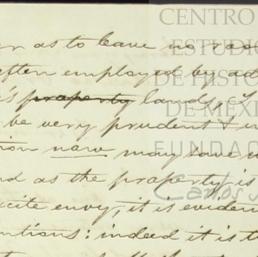 as to leave no roo
often employed by ad
's property lands,
be very prudent &
tion now may save
d as the property is
cite envy, it is eviden
ntions: indeed it is t
CENTRO
ESTUDIO
DE HISTO
DE MEXI
FUNDAC
Carlos